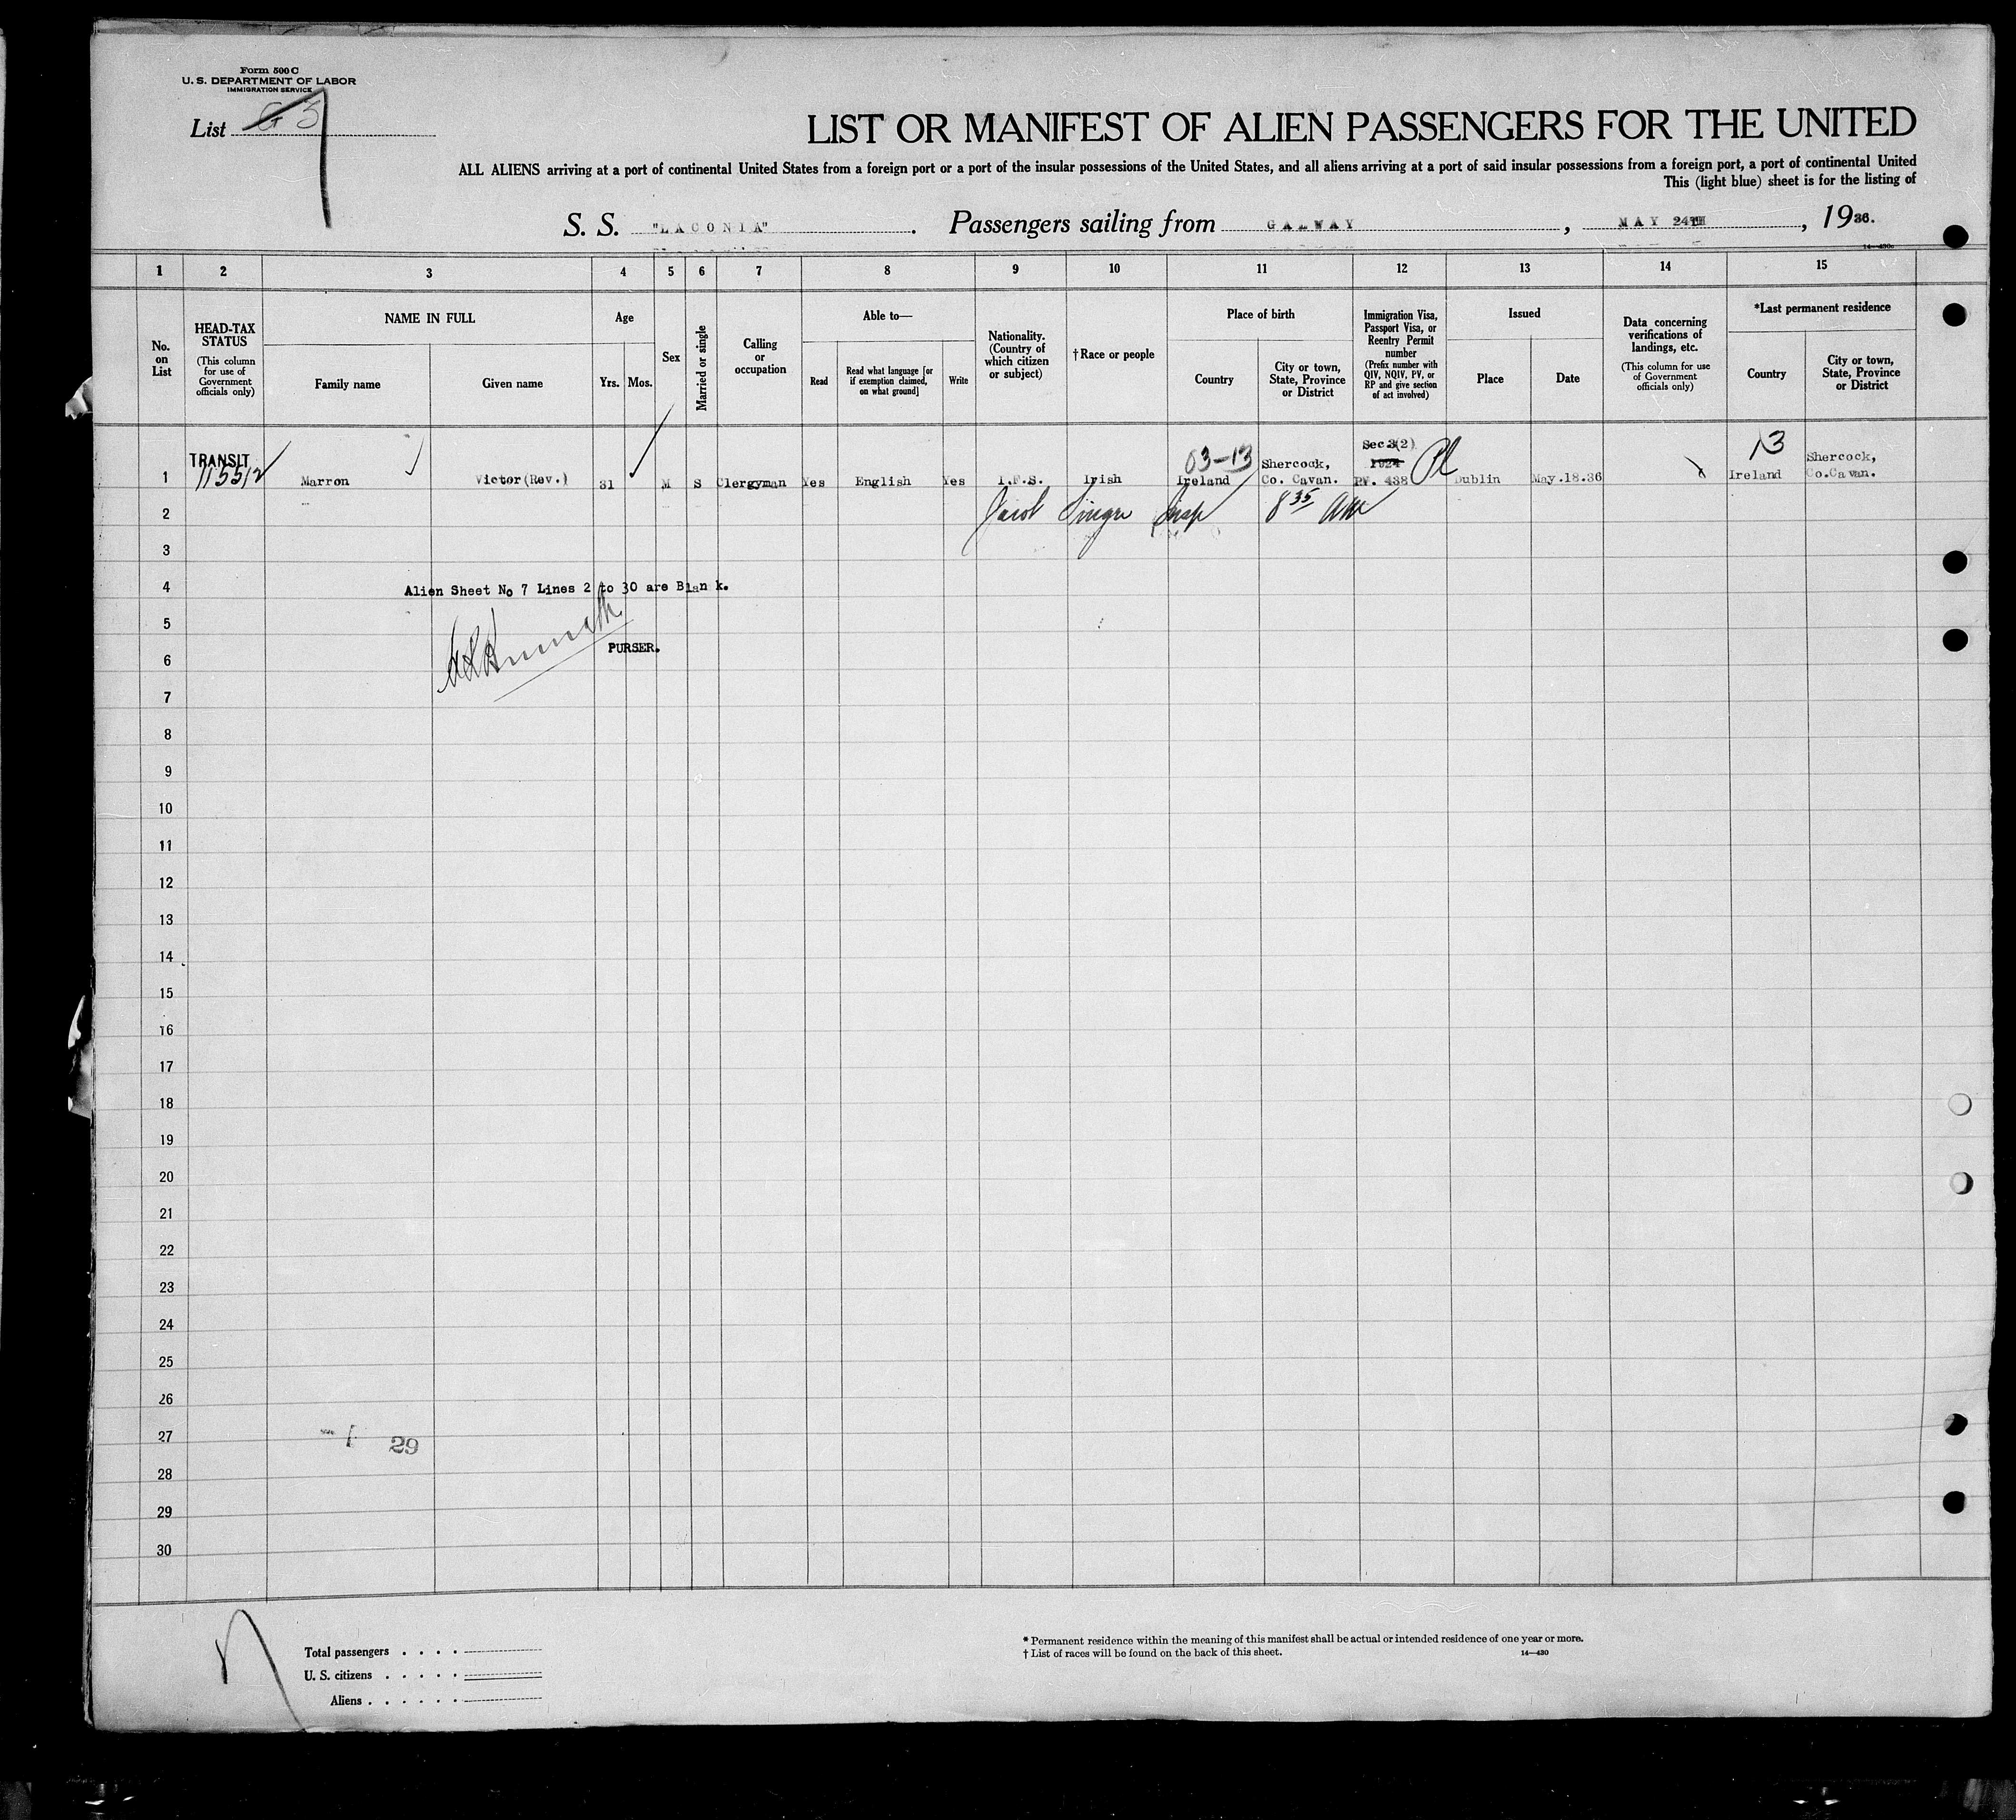 Form 500 C
U. S. DEPARTMENT OF LABOR
IMMIGRATION SERVICE
List 7
LIST OR MANIFEST OF ALIEN PASSENGERS FOR THE UNITED
ALL ALIENS arriving at a port of continental United States from a foreign port or a port of the insular possessions of the United States, and all aliens arriving at a port of said insular possessions from a foreign port, a port of continental United
This (light blue) sheet is for the listing of
S. S. "LACONIA". Passengers sailing from GALWAY, MAY 24TH, 1936.
14—430
1 2 3 4 5 6 7 8 9 10 11 12 13 14 15
No. on List
HEAD-TAX STATUS
(This column for use of Government officials only)
NAME IN FULL
Family name
Given name
Age
Yrs.
Mos.
Sex
Married or single
Calling or occupation
Able to—
Read
Read what language [or if exemption claimed, on what ground]
Write
Nationality. (Country of which citizen or subject)
†Race or people
Place of birth
Country
City or town, State, Province or District
Immigration Visa, Passport Visa, or Reentry Permit number
(Prefix number with QIV, NQIV, PV, or RP and give section of act involved)
Issued
Place
Date
Data concerning verifications of landings, etc.
(This column for use of Government officials only)
*Last permanent residence
Country
City or town, State, Province or District
1 TRANSIT 115512 Marron Victor(Rev.) 31 M S Clergyman Yes English Yes I.F.S. Irish 03-13 Ireland Shercock, Co. Cavan. Sec.3(2) 1924 PV. 438 Dublin May.18.36 13 Ireland Shercock, Co.Cavan.
2 Jacob Singer Insp 8 35 AM
3
4 Alien Sheet No 7 Lines 2 to 30 are Blank.
5
6 PURSER.
7
8
9
10
11
12
13
14
15
16
17
18
19
20
21
22
23
24
25
26
27 29
28
29
30
7
Total passengers
U. S. citizens
Aliens
* Permanent residence within the meaning of this manifest shall be actual or intended residence of one year or more.
† List of races will be found on the back of this sheet.
14—430